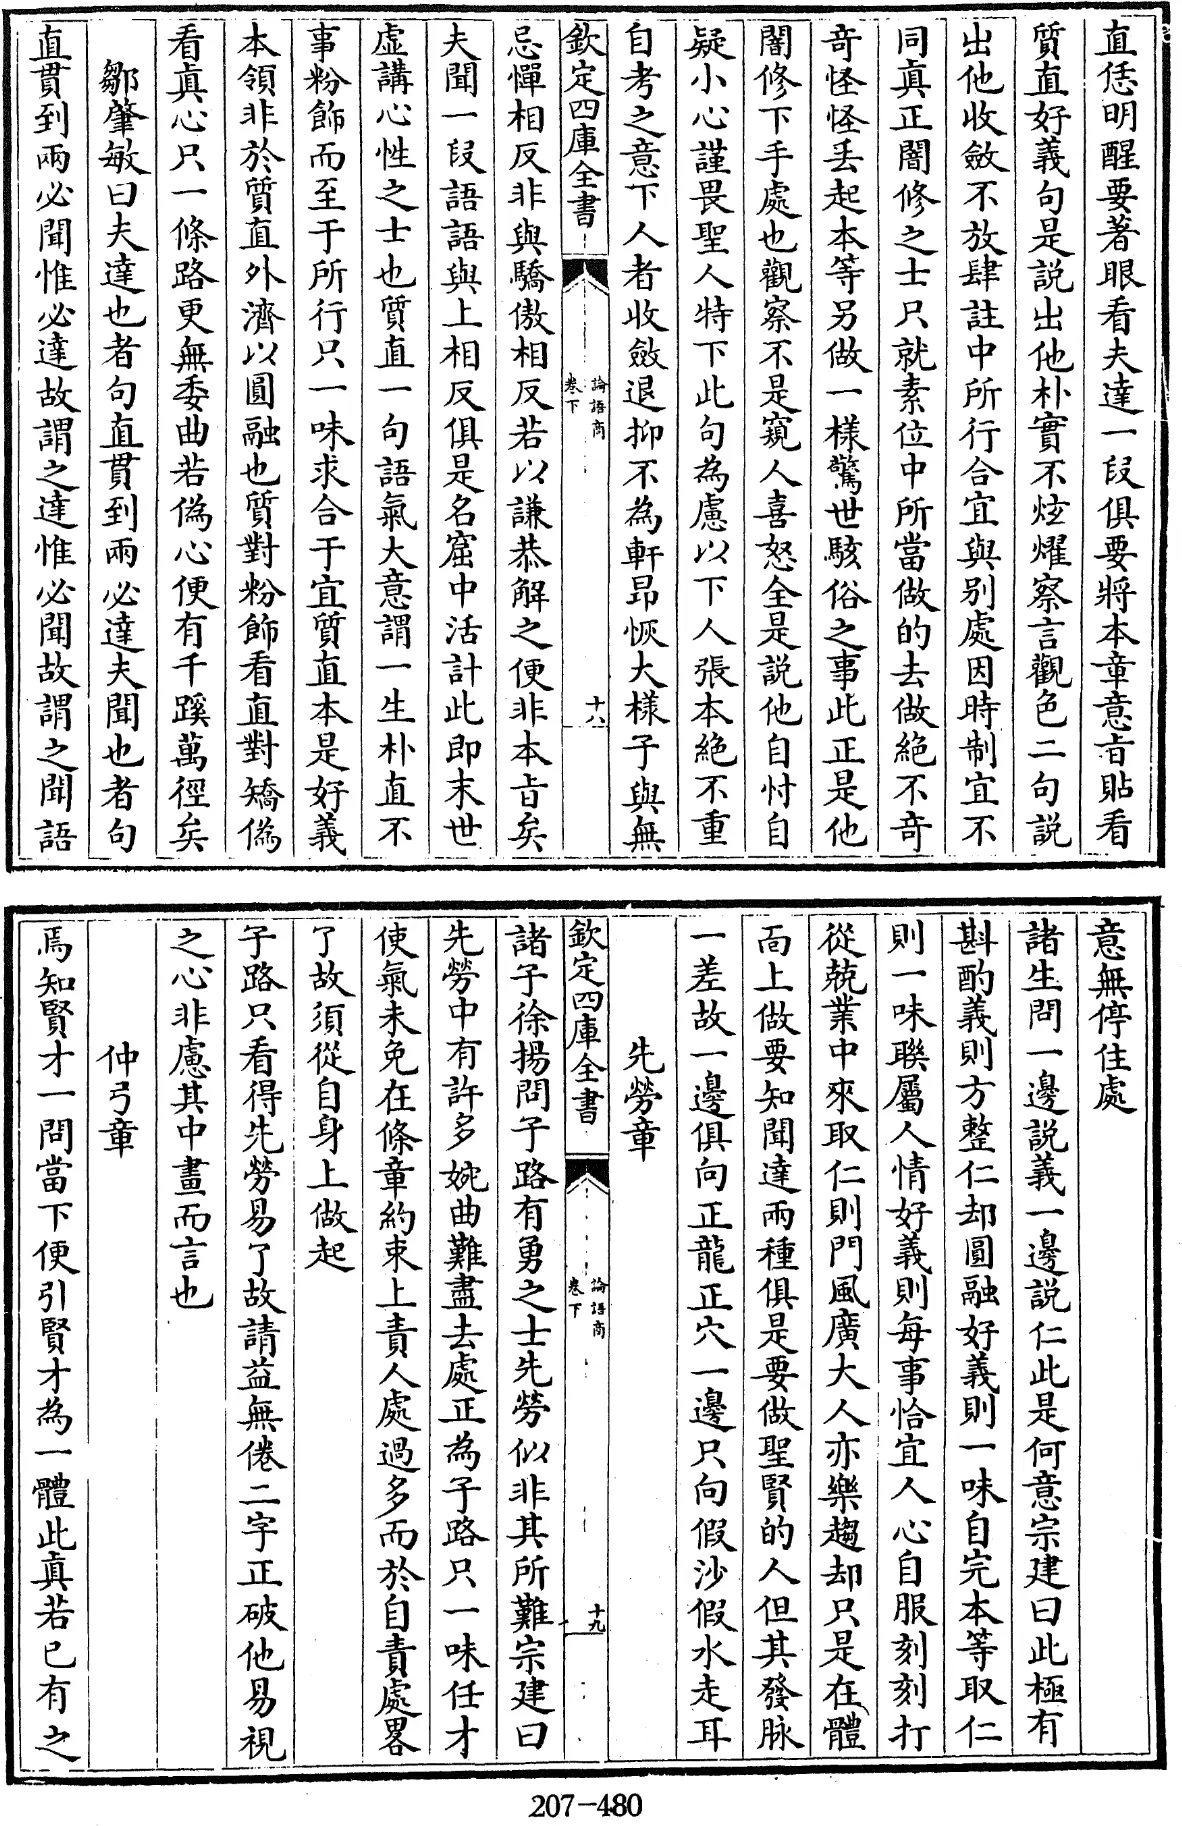 直恁明醒要著眼看夫達一段俱要將本章意㫖貼看
質直好義句是說出他朴實不炫燿察言觀色二句說
出他收斂不放肆註中所行合宜與别處因時制宜不
同真正闇修之士只就素位中所當做的去做絶不奇
奇怪怪丢起本等另做一樣驚世駭俗之事此正是他
闇修下手處也觀察不是窺人喜怒全是說他自忖自
疑小心謹畏聖人特下此句為慮以下人張本絶不重
自考之意下人者收斂退抑不為軒昂恢大様子與無
欽定四庫全書
論語商
卷下
十八
忌憚相反非與驕傲相反若以謙恭解之便非本㫖矣
夫聞一段語語與上相反俱是名窟中活計此即末世
虚講心性之士也質直一句語氣大意謂一生朴直不
事粉飾而至于所行只一味求合于宜質直本是好義
本領非於質直外濟以圓融也質對粉飾看直對矯偽
看真心只一條路更無委曲若偽心便有千蹊萬徑矣
鄒肇敏曰夫達也者句直貫到兩必達夫聞也者句
直貫到兩必聞惟必達故謂之達惟必聞故謂之聞語
意無停住處
諸生問一邊説義一邊説仁此是何意宗建曰此極有
斟酌義則方整仁却圓融好義則一味自完本等取仁
則一味聯屬人情好義則每事恰宜人心自服刻刻打
從兢業中來取仁則門風廣大人亦樂趨却只是在體
面上做要知聞達兩種俱是要做聖賢的人但其發脉
一差故一邊俱向正龍正穴一邊只向假沙假水走耳
先勞章
欽定四庫全書
論語商
卷下
十九
諸子徐揚問子路有勇之士先勞似非其所難宗建曰
先勞中有許多婉曲難盡去處正為子路只一味任才
使氣未免在條章約束上責人處過多而於自責處畧
了故須從自身上做起
子路只看得先勞易了故請益無倦二字正破他易視
之心非慮其中畫而言也
仲弓章
焉知賢才一問當下便引賢才為一體此真若已有之
207-480